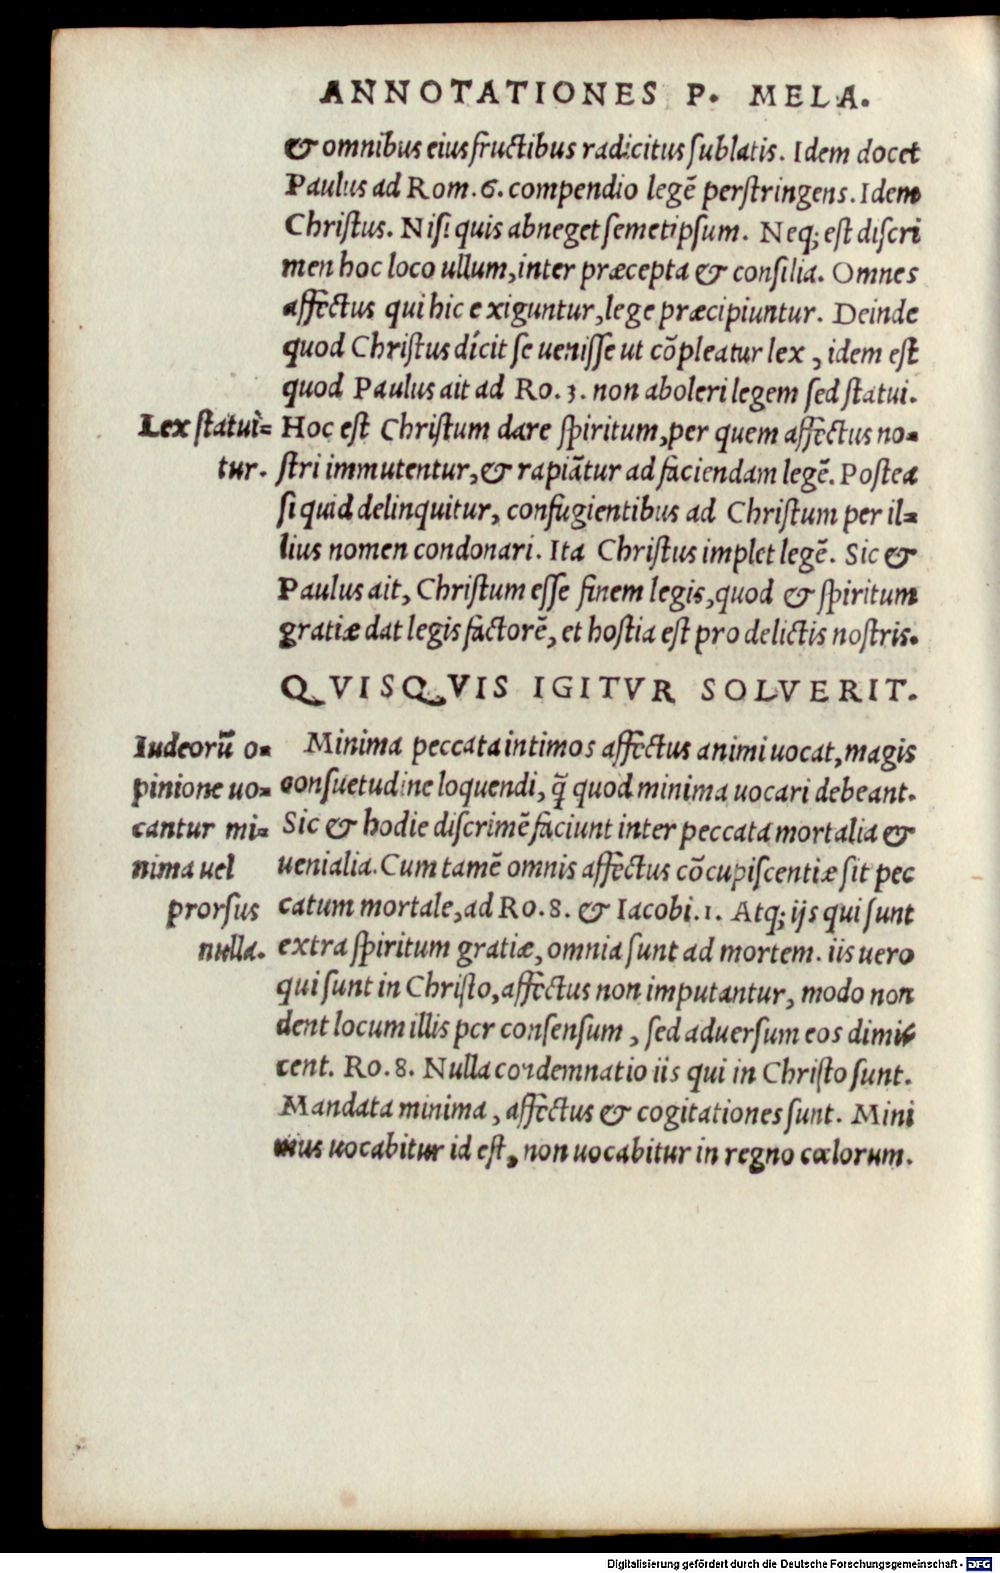 ANNOTATIONES P. MELA.
& omnibus eius fructibus radicitus sublatis. Idem docet
Paulus ad Rom. 6. compendio legẽ perstringens. Idem
Christus. Nisi quis abneget semetipsum. Neq; est discri
men hoc loco ullum, inter præcepta & consilia. Omnes
affectus qui hic exiguntur, lege præcipiuntur. Deinde
quod Christus dicit se uenisse ut cõpleatur lex, idem est
quod Paulus ait ad Ro. 3. non aboleri legem sed statui.
Lex statui=
tur.
Hoc est Christum dare spiritum, per quem affectus no=
stri immutentur, & rapiãtur ad faciendam legẽ. Postea
si quid delinquitur, confugientibus ad Christum per il=
lius nomen condonari. Ita Christus implet legẽ. Sic &
Paulus ait, Christum esse finem legis, quod & spiritum
gratiæ dat legis factorẽ, et hostia est pro delictis nostris.
QVISQVIS IGITVR SOLVERIT.
Iudeorũ o=
pinione uo=
cantur mi=
nima uel
prorsus
nulla.
Minima peccata intimos affectus animi uocat, magis
consuetudine loquendi, q̃ quod minima uocari debeant.
Sic & hodie discrimẽ faciunt inter peccata mortalia &
uenialia. Cum tamẽ omnis affectus cõcupiscentiæ sit pec
catum mortale, ad Ro. 8. & Iacobi. 1. Atq; ijs qui sunt
extra spiritum gratiæ, omnia sunt ad mortem. iis uero
qui sunt in Christo, affectus non imputantur, modo non
dent locum illis per consensum, sed aduersum eos dimi=
cent. Ro. 8. Nulla condemnatio iis qui in Christo sunt.
Mandata minima, affectus & cogitationes sunt. Mini
mus uocabitur id est, non uocabitur in regno cœlorum.
Digitalisierung gefördert durch die Deutsche Forschungsgemeinschaft - DFG